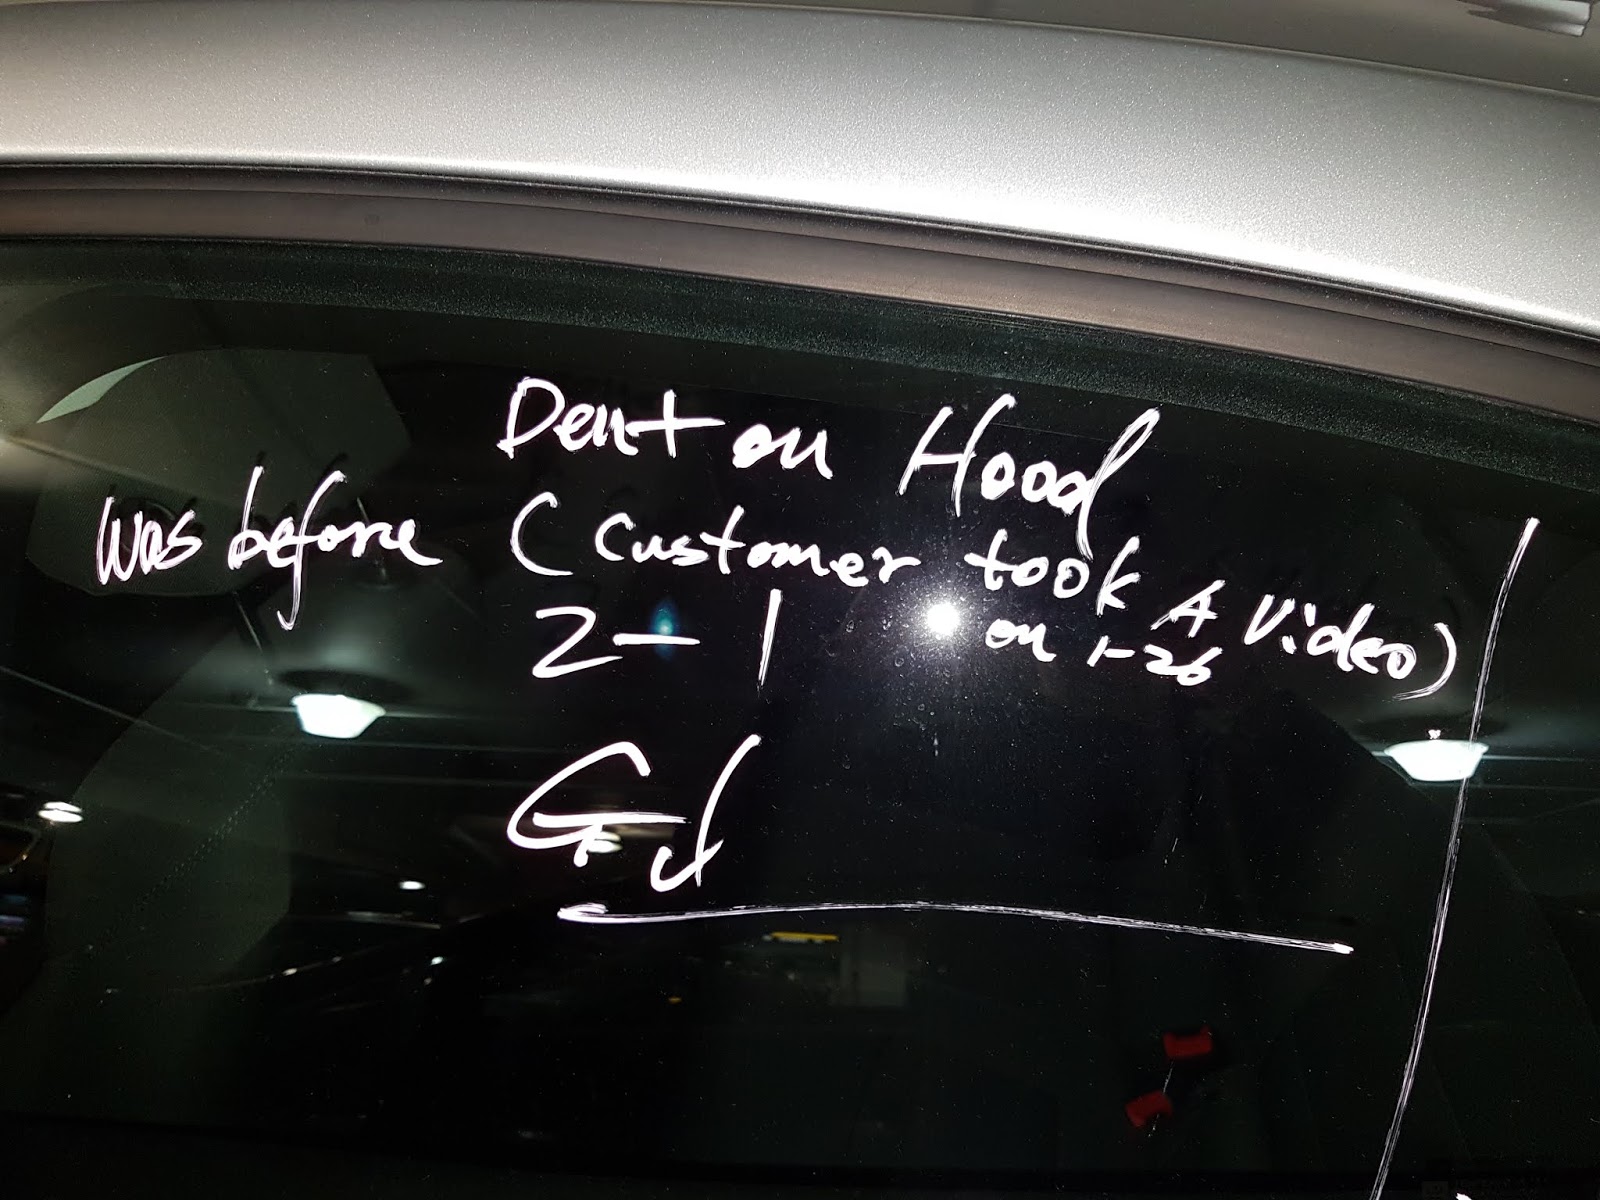 Dent on Hood
was before (customer took A Video)
2-1 on 1-26